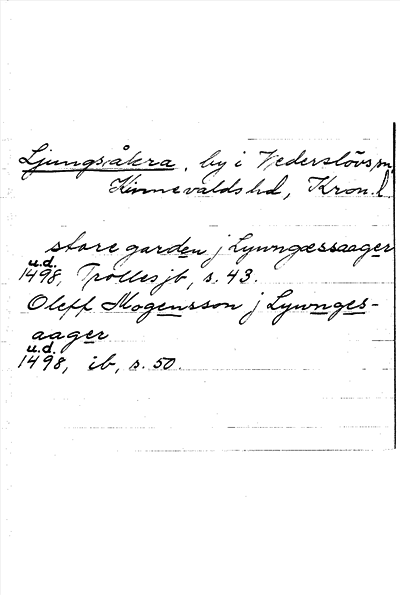 Ljungsåkra, by i Vederslövs sn,
Kinnevalds hd, Kron. l.
store garden j Lywngæssaager
u.d.
1498, Trolles jb, s. 43.
Oleff Mogensson j Lywnges-
aager
u.d.
1498, ib, s. 50.